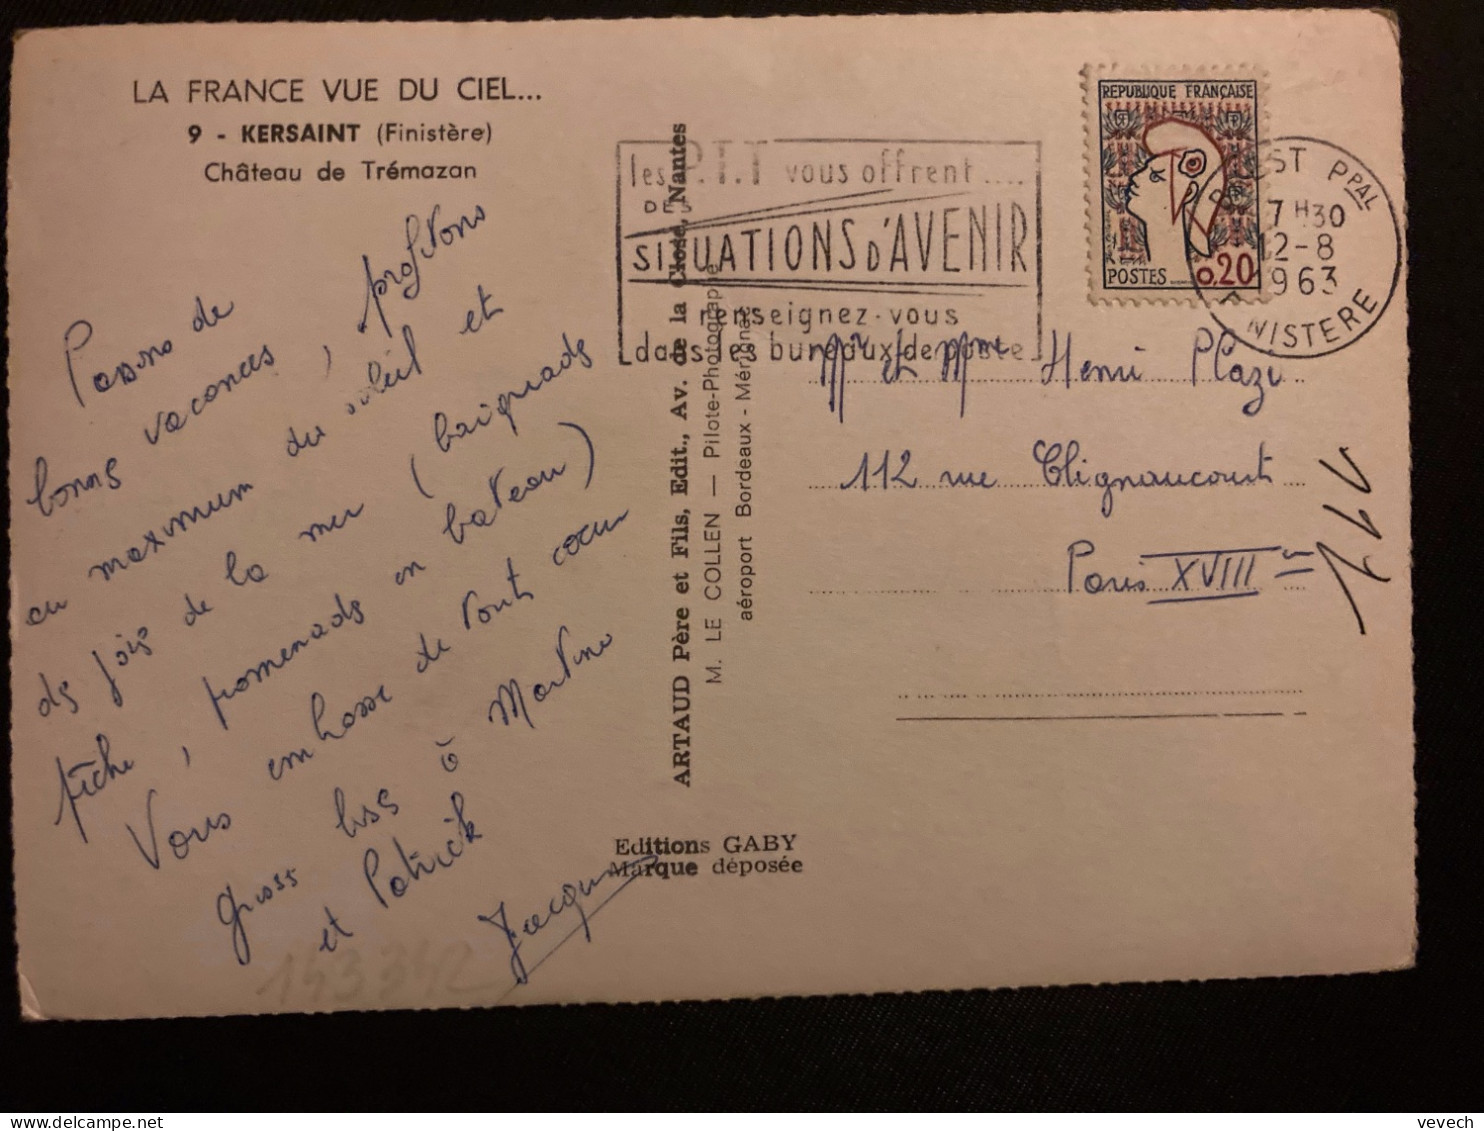 LA FRANCE VUE DU CIEL...
9 - KERSAINT (Finistère)
Château de Trémazan
Passons de
bonnes vacances, profitons
au maximum du soleil et
des joies de la mer (baignades
pêche, promenades en bateau)
Vous embrasse de tout coeur
Gross biss à Martine
et Patrick
Jacques
143342
ARTAUD Père et Fils, Edit., Av. de la Close, Nantes
M. LE COLLEN — Pilote-Photographe
aéroport Bordeaux - Mérignac
Editions GABY
Marque déposée
les P.T.T vous offrent....
DES
SITUATIONS D'AVENIR
renseignez-vous
dans les bureaux de poste
REPUBLIQUE FRANÇAISE
POSTES 0,20
BREST PPAL
17 H 30
12-8
1963
FINISTERE
Mr et Mme Henri Plazi
112 rue Clignancourt
Paris XVIII
vevech